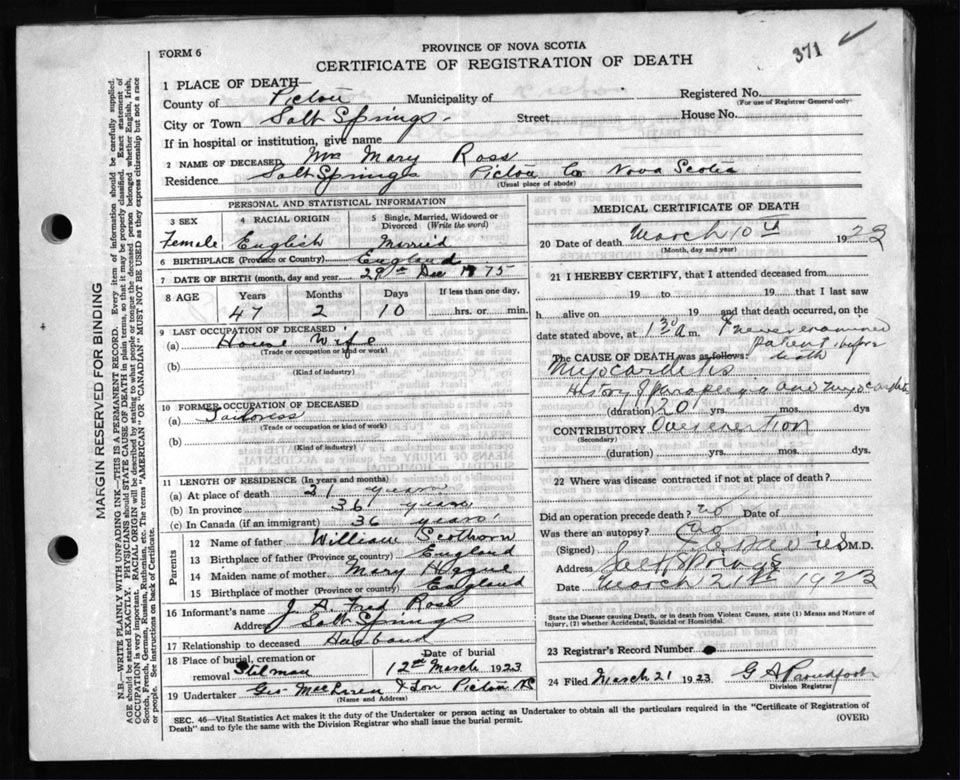 371
FORM 6
PROVINCE OF NOVA SCOTIA
CERTIFICATE OF REGISTRATION OF DEATH
MARGIN RESERVED FOR BINDING
N.B.—WRITE PLAINLY WITH UNFADING INK—THIS IS A PERMANENT RECORD. Every item of information should be carefully supplied.
AGE should be stated EXACTLY. PHYSICIANS should STATE CAUSE OF DEATH in plain terms, so that it may be properly classified. Exact statement of
OCCUPATION is very important. RACIAL ORIGIN will be described by stating to what people or tongue the deceased person belonged whether English, Irish,
Scotch, French, German, Russian, Ruthenian, etc. The terms "AMERICAN" or "CANADIAN" MUST NOT BE USED as they express citizenship but not a race
or people. See instructions on back of Certificate.
1 PLACE OF DEATH—
County of Pictou Municipality of Registered No.
(For use of Registrar General only)
City or Town Salt Springs. Street House No.
If in hospital or institution, give name
2 NAME OF DECEASED Mrs Mary Ross
Residence Salt Springs Pictou Co Nova Scotia
(Usual place of abode)
PERSONAL AND STATISTICAL INFORMATION
3 SEX Female
4 RACIAL ORIGIN English
5 Single, Married, Widowed or Divorced (Write the word) Married
6 BIRTHPLACE (Province or Country) England
7 DATE OF BIRTH (month, day and year) Dec 1875
8 AGE Years Months Days If less than one day,
47 2 10 hrs. or min.
9 LAST OCCUPATION OF DECEASED
(a) House Wife
(Trade or occupation or kind of work)
(b)
(Kind of industry)
10 FORMER OCCUPATION OF DECEASED
(a) Tailoress
(Trade or occupation or kind of work)
(b)
(Kind of industry)
11 LENGTH OF RESIDENCE (In years and months)
(a) At place of death 31 years
(b) In province 36 years
(c) In Canada (if an immigrant) 36 years
Parents
12 Name of father William Scothorn
13 Birthplace of father (Province or country) England
14 Maiden name of mother Mary
15 Birthplace of mother (Province or country) England
16 Informant's name J. A. Fred Ross
Address Salt Springs
17 Relationship to deceased Husband
18 Place of burial, cremation or removal Date of burial
12th March 1923
19 Undertaker Geo & Son Pictou NS
(Name and Address)
MEDICAL CERTIFICATE OF DEATH
20 Date of death March 10th 1923
(Month, day and year)
21 I HEREBY CERTIFY, that I attended deceased from
19 to 19 that I last saw
h alive on 19 and that death occurred, on the
date stated above, at 1 30 a m. I never examined
patient before
death
The CAUSE OF DEATH was as follows:
Myocarditis
History of and myocarditis
(duration) 20 yrs. mos. dys
CONTRIBUTORY Overexertion
(Secondary)
(duration) yrs. mos. dys.
22 Where was disease contracted if not at place of death?
Did an operation precede death? no Date of
Was there an autopsy? no
(Signed) M.D.
Address Salt Springs
Date March 21st 1923
State the Disease causing Death, or in death from Violent Causes, state (1) Means and Nature of
Injury, (2) whether Accidental, Suicidal or Homicidal.
23 Registrar's Record Number
24 Filed March 21 1923 G A Proudfoot
Division Registrar
SEC. 46—Vital Statistics Act makes it the duty of the Undertaker or person acting as Undertaker to obtain all the particulars required in the "Certificate of Registration of
Death" and to fyle the same with the Division Registrar who shall issue the burial permit.
(OVER)